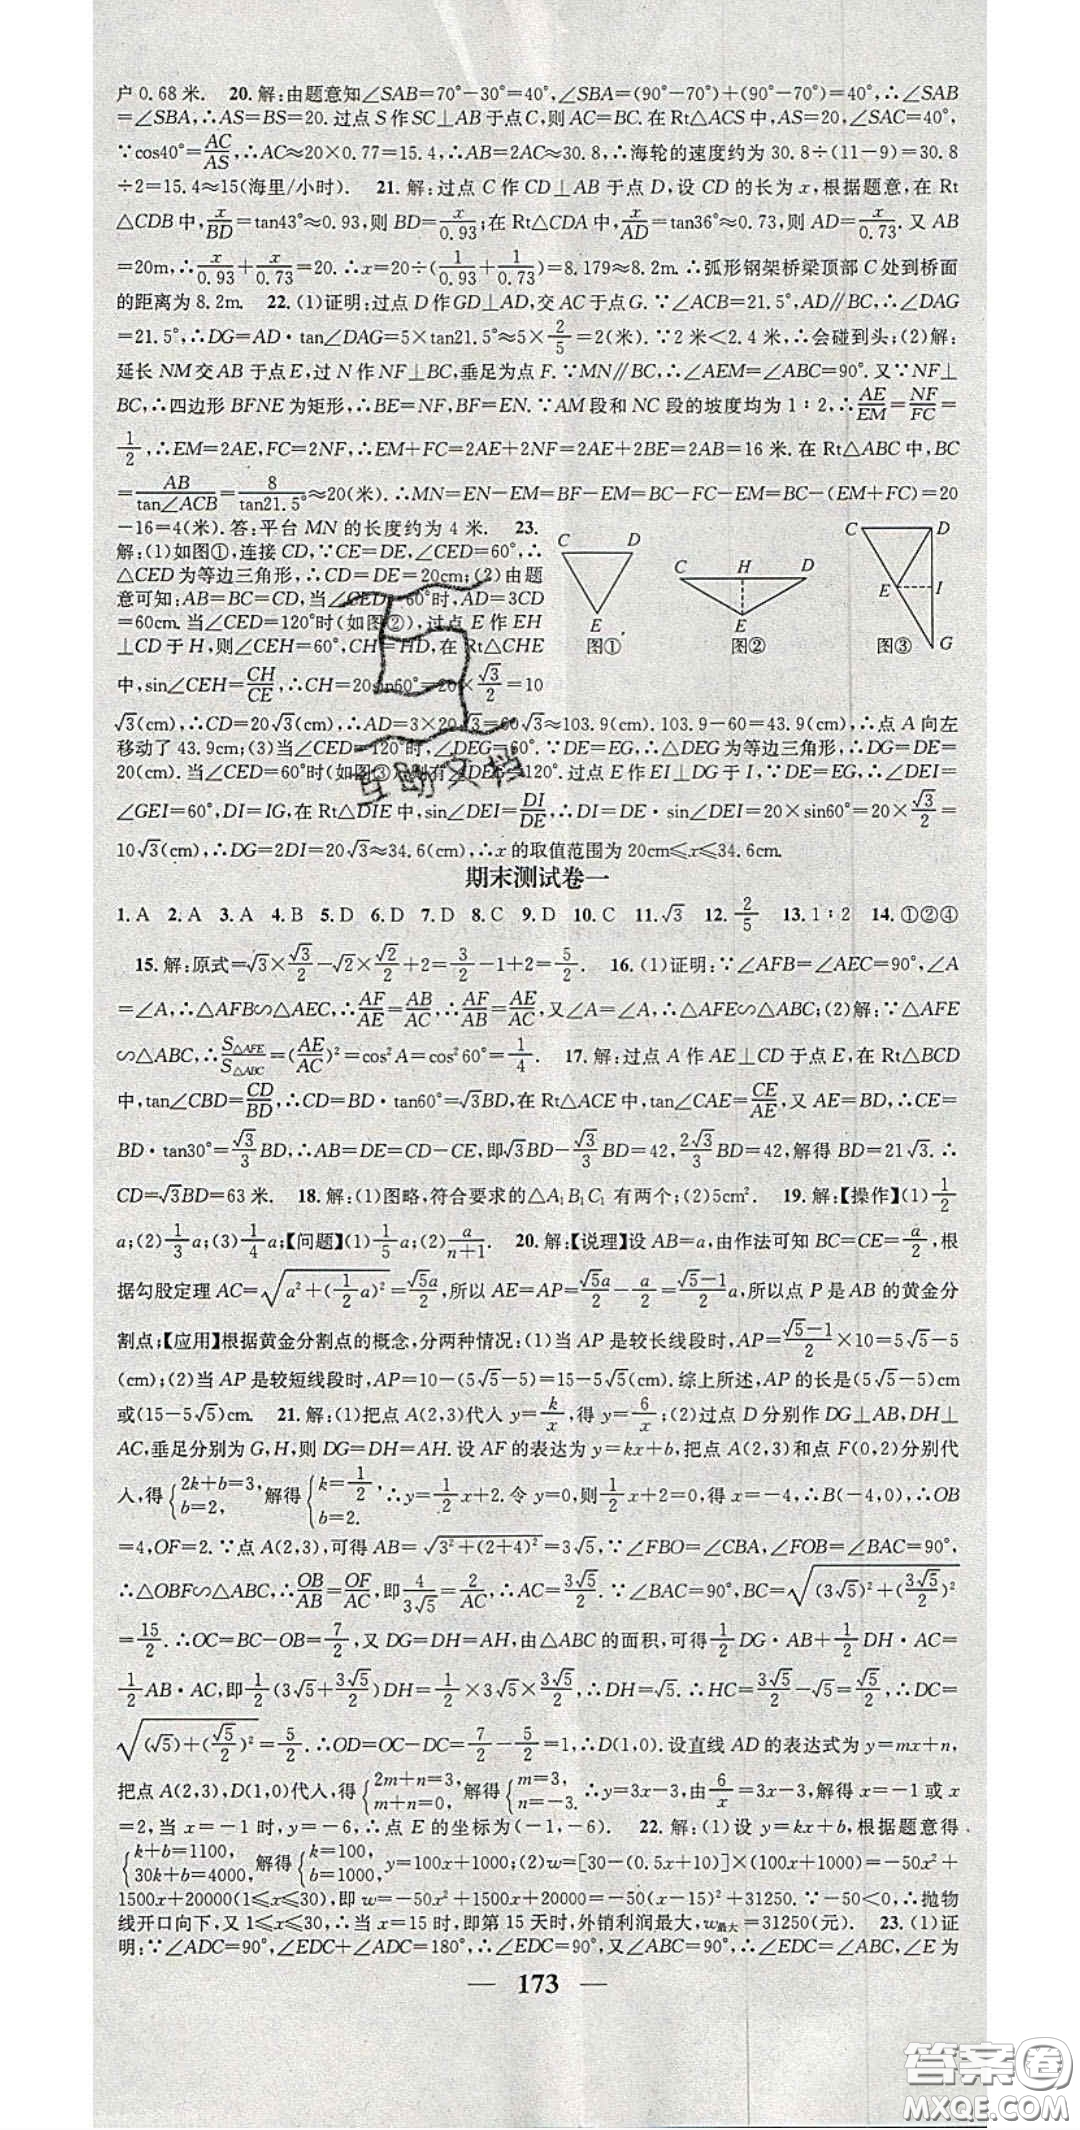 户0.68米. 20.解:由题意知∠SAB=70°-30°=40°,∠SBA=(90°-70°)+(90°-70°)=40°,∴∠SAB
=∠SBA,∴AS=BS=20.过点S作SC⊥AB于点C,则AC=BC.在Rt△ACS中,AS=20,∠SAC=40°,
∵cos40°=AC/AS,∴AC≈20×0.77=15.4,∴AB=2AC≈30.8,∴海轮的速度约为30.8÷(11-9)=30.8
÷2=15.4≈15(海里/小时). 21.解:过点C作CD⊥AB于点D,设CD的长为x,根据题意,在Rt
△CDB中,x/BD=tan43°≈0.93,则BD=x/0.93;在Rt△CDA中,x/AD=tan36°≈0.73,则AD=x/0.73.又AB
=20m,∴x/0.93+x/0.73=20.∴x=20÷(1/0.93+1/0.73)=8.179≈8.2m.∴弧形钢架桥梁顶部C处到桥面
的距离为8.2m. 22.(1)证明:过点D作GD⊥AD,交AC于点G.∵∠ACB=21.5°,AD∥BC,∴∠DAG
=21.5°,∴DG=AD·tan∠DAG=5×tan21.5°≈5×2/5=2(米).∵2米<2.1米,∴会碰到头;(2)解:
延长NM交AB于点E,过N作NF⊥BC,垂足为点F.∵MN∥BC,∴∠AEM=∠ABC=90°.又∵NF⊥
BC,∴四边形BFNE为矩形,∴BE=NF,BF=EN.∵AM段和NC段的坡度均为1∶2,∴AE/EM=NF/FC=
1/2,∴EM=2AE,FC=2NF,∴EM+FC=2AE+2NF=2AE+2BE=2AB=16米.在Rt△ABC中,BC
=AB/tan∠ACB=8/tan21.5°≈20(米).∴MN=EN-EM=BF-EM=BC-FC-EM=BC-(EM+FC)=20
-16=4(米).答:平台MN的长度约为4米. 23.
解:(1)如图①,连接CD,∵CE=DE,∠CED=60°,∴
△CED为等边三角形,∴CD=DE=20cm;(2)由题
意可知:AB=BC=CD,当∠CED=60°时,AD=3CD
=60cm.当∠CED=120°时(如图②),过点E作EH
⊥CD于H,则∠CEH=60°,CH=HD,在Rt△CHE
中,sin∠CEH=CH/CE,∴CH=20sin60°=20×√3/2=10
C D E 图①
C H D E 图②
C D E I G 图③
√3(cm),∴CD=20√3(cm),∴AD=3×20√3=60√3≈103.9(cm).103.9-60=43.9(cm),∴点A向左
移动了43.9cm;(3)当∠CED=120°时,∠DEG=60°.∵DE=EG,∴△DEG为等边三角形,∴DG=DE=
20(cm).当∠CED=60°时(如图③),则有∠DEG=120°.过点E作EI⊥DG于I,∵DE=EG,∴∠DEI=
∠GEI=60°,DI=IG,在Rt△DIE中,sin∠DEI=DI/DE,∴DI=DE·sin∠DEI=20×sin60°=20×√3/2=
10√3(cm),∴DG=2DI=20√3≈34.6(cm),∴x的取值范围为20cm≤x≤34.6cm.
互助文档
期末测试卷一
1.A 2.A 3.A 4.B 5.D 6.D 7.D 8.C 9.D 10.C 11.√3 12.2/5 13.1∶2 14.①②④
15.解:原式=√3×√3/2-√2×√2/2+2=3/2-1+2=5/2. 16.(1)证明:∵∠AFB=∠AEC=90°,∠A
=∠A,∴△AFB∽△AEC,∴AF/AE=AB/AC,∴AF/AB=AE/AC,又∠A=∠A,∴△AFE∽△ABC;(2)解:∵△AFE
∽△ABC,∴S△AFE/S△ABC=(AE/AC)²=cos²A=cos²60°=1/4. 17.解:过点A作AE⊥CD于点E,在Rt△BCD
中,tan∠CBD=CD/BD,∴CD=BD·tan60°=√3BD,在Rt△ACE中,tan∠CAE=CE/AE,又AE=BD,∴CE=
BD·tan30°=√3/3BD,∴AB=DE=CD-CE,即√3BD-√3/3BD=42,2√3/3BD=42,解得BD=21√3.∴
CD=√3BD=63米. 18.解:(1)图略,符合要求的△A₁B₁C₁有两个;(2)5cm². 19.解:【操作】(1)1/2
a;(2)1/3a;(3)1/4a;【问题】(1)1/5a;(2)a/(n+1). 20.解:【说理】设AB=a,由作法可知BC=CE=a/2,根
据勾股定理AC=√(a²+(1/2a)²)=√5a/2,所以AE=AP=√5a/2-a/2=(√5-1)/2a,所以点P是AB的黄金分
割点;【应用】根据黄金分割点的概念,分两种情况:(1)当AP是较长线段时,AP=(√5-1)/2×10=5√5-5
(cm);(2)当AP是较短线段时,AP=10-(5√5-5)=15-5√5(cm).综上所述,AP的长是(5√5-5)cm
或(15-5√5)cm. 21.解:(1)把点A(2,3)代入y=k/x,得y=6/x;(2)过点D分别作DG⊥AB,DH⊥
AC,垂足分别为G,H,则DG=DH=AH.设AF的表达为y=kx+b,把点A(2,3)和点F(0,2)分别代
入,得{2k+b=3, b=2, 解得{k=1/2, b=2. ∴y=1/2x+2.令y=0,则1/2x+2=0,得x=-4,∴B(-4,0),∴OB
=4,OF=2.∵点A(2,3),可得AB=√(3²+(2+4)²)=3√5,∵∠FBO=∠CBA,∠FOB=∠BAC=90°,
∴△OBF∽△ABC,∴OB/AB=OF/AC,即4/3√5=2/AC,∴AC=3√5/2.∵∠BAC=90°,BC=√((3√5)²+(3√5/2)²)
=15/2.∴OC=BC-OB=7/2,又DG=DH=AH,由△ABC的面积,可得1/2DG·AB+1/2DH·AC=
1/2AB·AC,即1/2(3√5+3√5/2)DH=1/2×3√5×3√5/2,∴DH=√5.∴HC=3√5/2-√5=√5/2,∴DC=
√((√5)+(√5/2)²)=5/2.∴OD=OC-DC=7/2-5/2=1,∴D(1,0).设直线AD的表达式为y=mx+n,
把点A(2,3),D(1,0)代入,得{2m+n=3, m+n=0, 解得{m=3, n=-3. ∴y=3x-3,由6/x=3x-3,解得x=-1或x
=2,当x=-1时,y=-6,∴点E的坐标为(-1,-6). 22.解:(1)设y=kx+b,根据题意得
{k+b=1100, 30k+b=4000, 解得{k=100, b=1000, y=100x+1000;(2)w=[30-(0.5x+10)]×(100x+1000)=-50x²+
1500x+20000(1≤x≤30),即w=-50x²+1500x+20000=-50(x-15)²+31250.∵-50<0,∴抛物
线开口向下,又1≤x≤30,∴当x=15时,即第15天时,外销利润最大,w最大=31250(元). 23.(1)证
明:∵∠ADC=90°,∠EDC+∠ADC=180°,∴∠EDC=90°,又∠ABC=90°,∴∠EDC=∠ABC,∠E为
— 173 —
答案圈
MXQE.COM